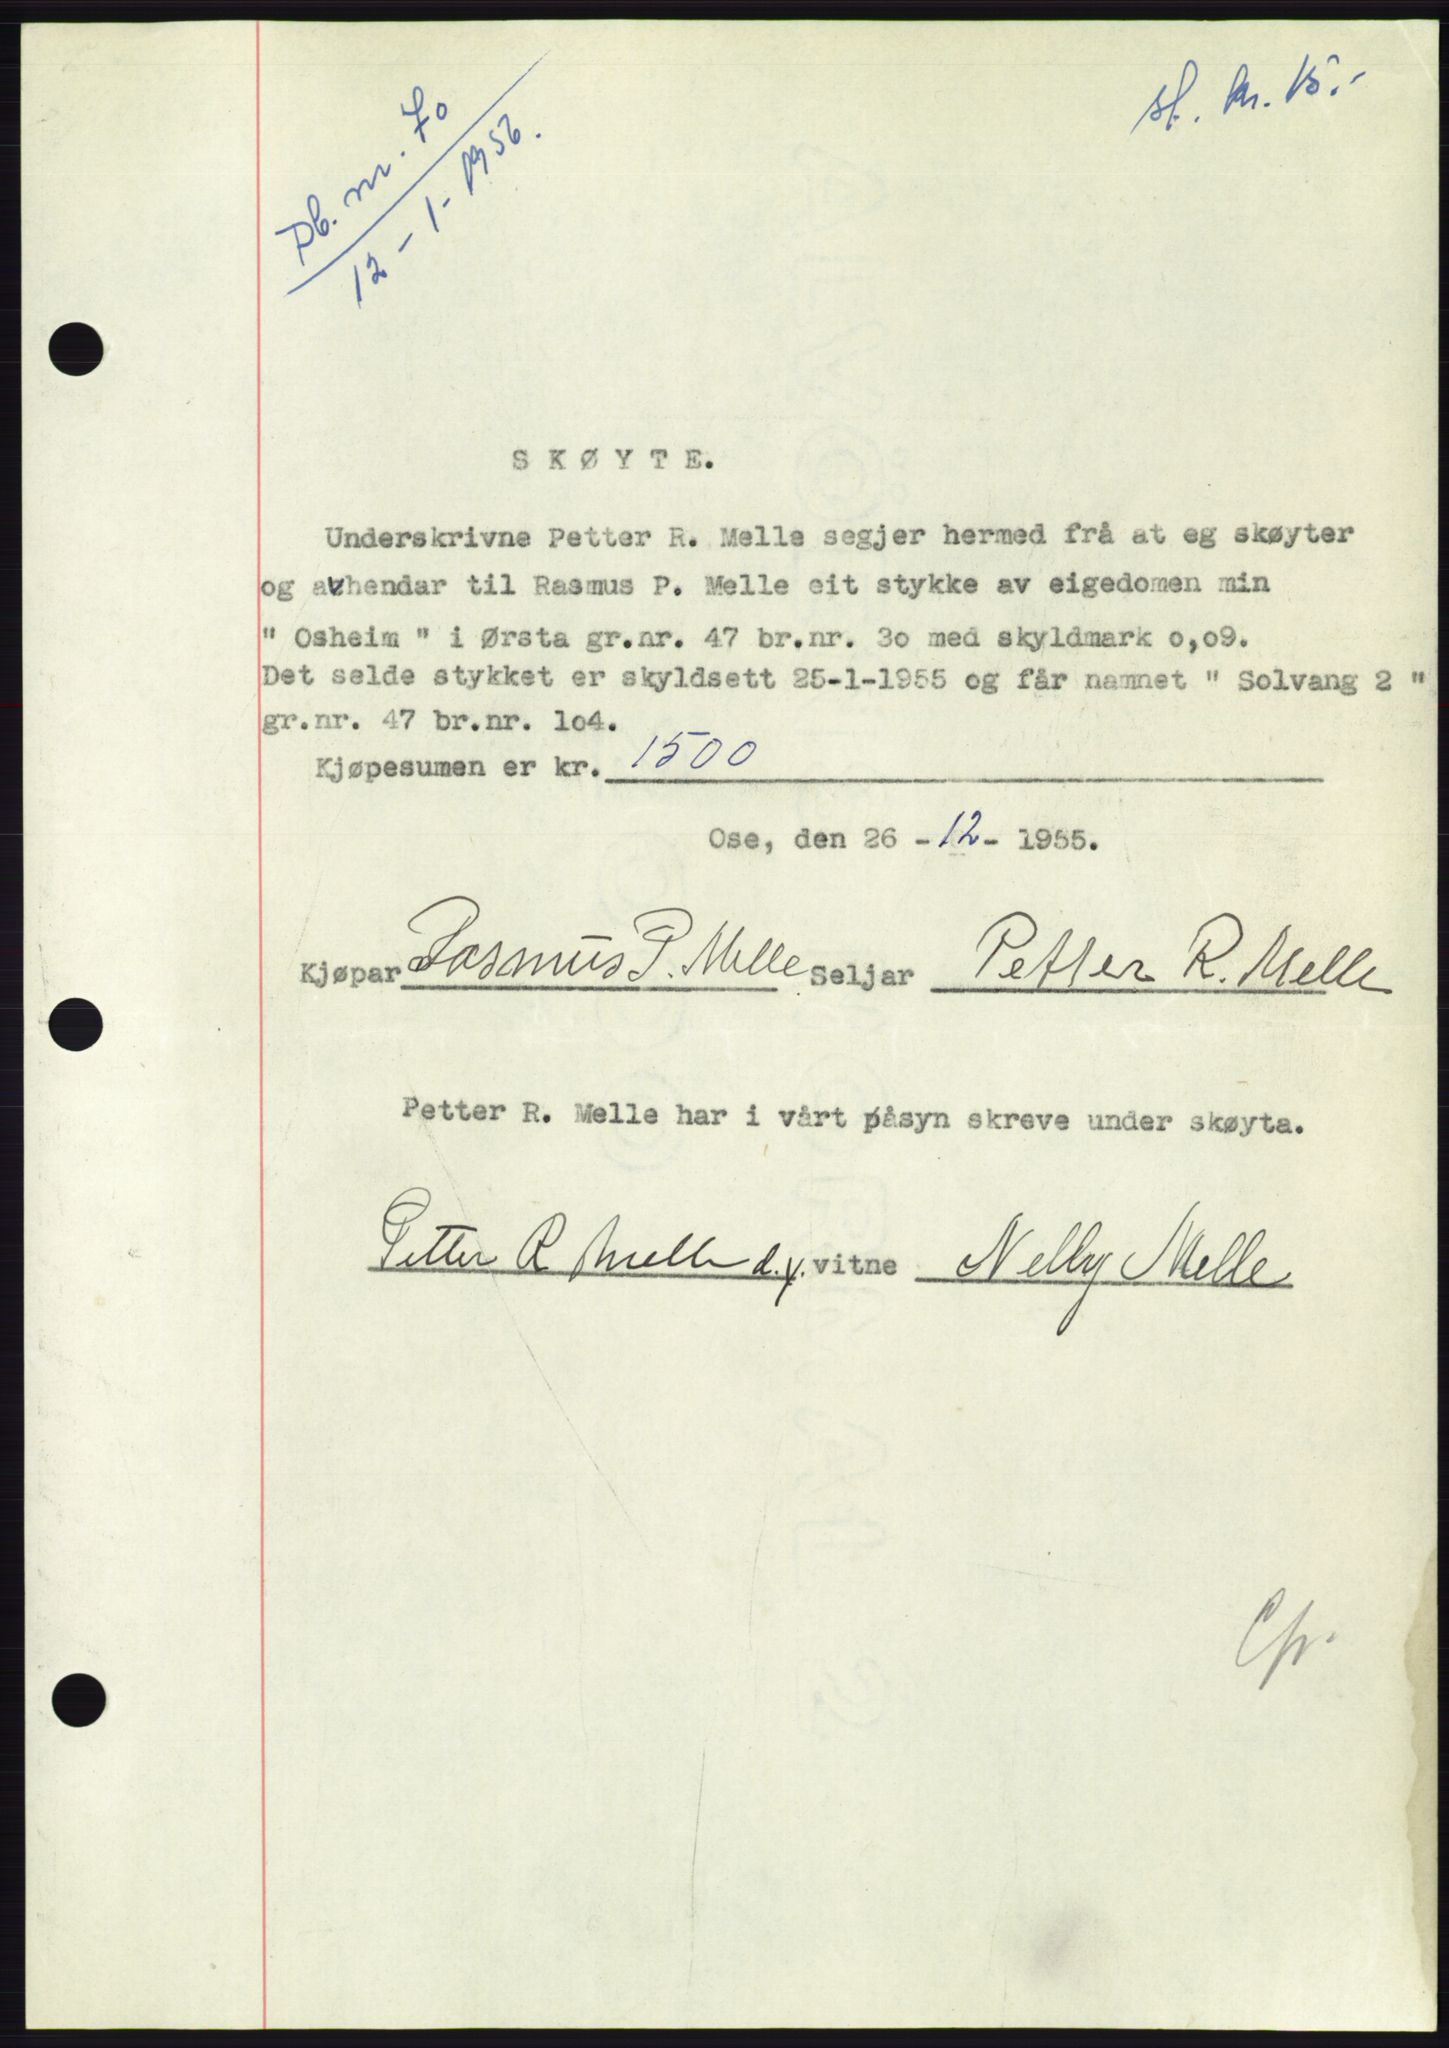 Db. nr. 70
12 - 1 - 1956.
st. kr. 15.-
SKØYTE.
Underskrivne Petter R. Melle segjer hermed frå at eg skøyter
og avhendar til Rasmus P. Melle eit stykke av eigedomen min
" Osheim " i Ørsta gr.nr. 47 br.nr. 3o med skyldmark o,o9.
Det selde stykket er skyldsett 25-1-1955 og får namnet " Solvang 2 "
gr.nr. 47 br.nr. lo4.
Kjøpesumen er kr. 1500
Ose, den 26 - 12 - 1955.
Kjøpar Rasmus P. Melle Seljar Petter R. Melle
Petter R. Melle har i vårt påsyn skreve under skøyta.
Petter R Melle d.y. vitne Nelly Melle